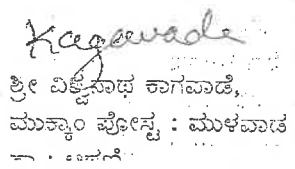 Kagavade
ಶ್ರೀ ವಿಶ್ವನಾಥ ಕಾಗವಾಡೆ,
ಮುಕ್ಕಾಂ ಪೋಸ್ಟ : ಮುಳವಾಡ